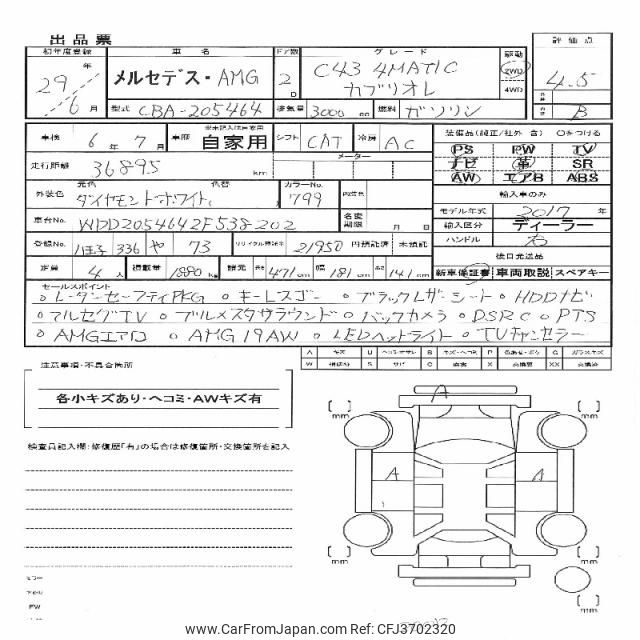 出品票
初年度登録 車名 ドア数 グレード 駆動 評価点
29年6月 メルセデス・AMG 2D C43 4MATIC カブリオレ 2WD 4WD 4.5 B
型式 CBA-205464 排気量 3000cc 燃料 ガソリン
車検 6年7月 車歴 自家用 シフト CAT 冷房 AC
装備品(純正/社外 含) ○をつける
PS PW TV
ナビ 革 SR
AW エアB ABS
走行距離 36895 km メーター
輸入車のみ
外装色 元色 ダイヤモンドホワイト 色替 カラーNo. 799 内装色
モデル年式 2017年
車台No. WDD2054642F538202 名変期限 月 日
輸入区分 ディーラー
ハンドル 右
登録No. 八王子 336 や 73 リサイクル預託金 21950円 預託済 未預託
後日発送品
定員 4人 積載量 kg 諸元 長さ 471cm 幅 181cm 高さ 141cm
新車保証書 車両取説 スペアキー
セールスポイント
○レーダーセーフティPKG ○キーレスゴー ○ブラックレザーシート ○HDDナビ
○フルセグTV ○ブルメスタサラウンド ○バックカメラ ○DSRC ○PTS
○AMGエアロ ○AMG19AW ○LEDヘッドライト ○TVキャンセラー
A キズ U B P G
W S サビ C X XX
注意事項・不具合箇所
各小キズあり・ヘコミ・AWキズ有
検査員記入欄:修復歴「有」の場合は修復箇所・交換箇所を記入
A
mm mm
A A
mm mm
mm
CarFromJapan.com Ref: CFJ3702320